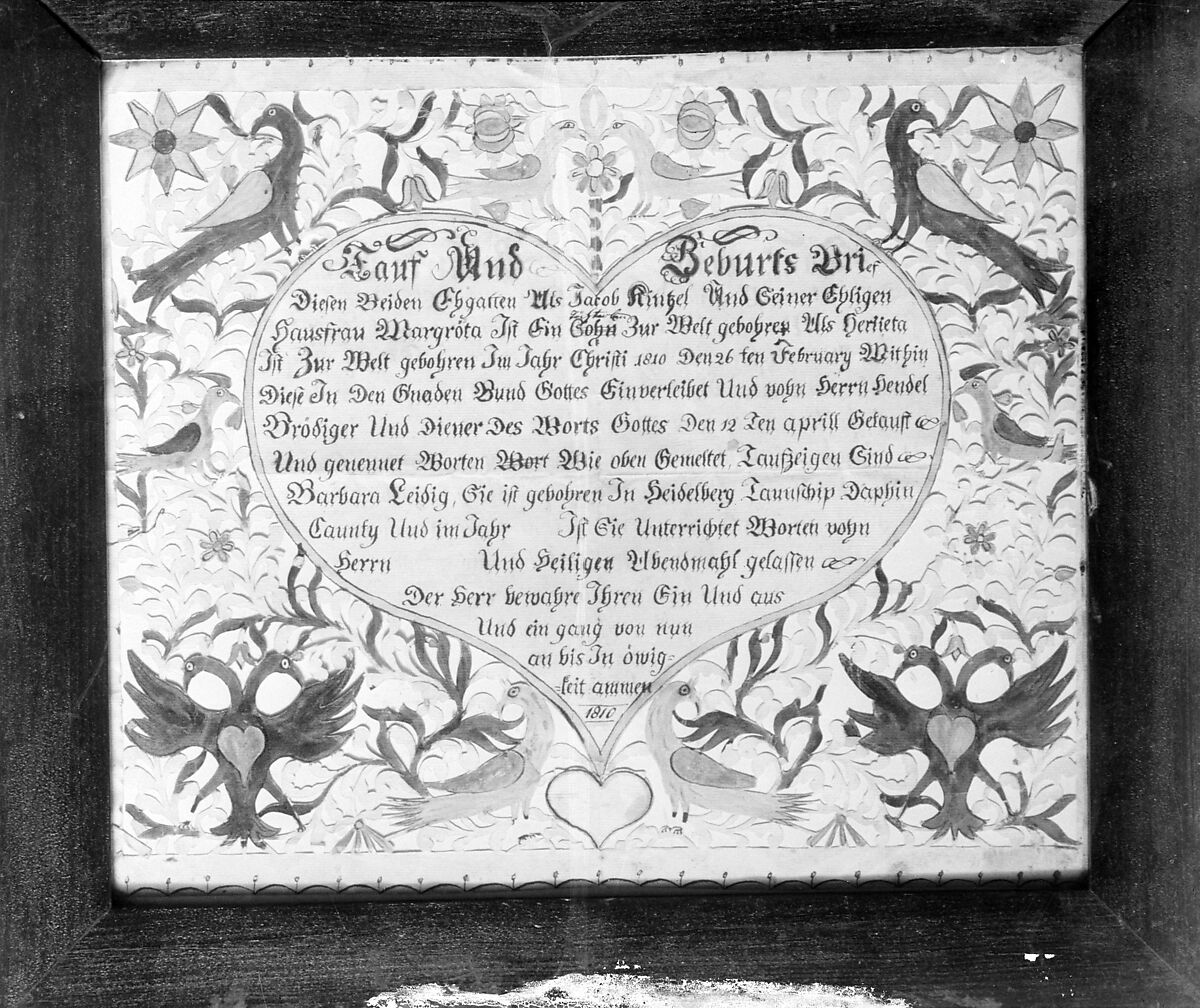 Tauf Und Geburts Brief
Diesen Beiden Ehgatten Als Jacob Kintzel Und Seiner Ehligen
Hausfrau Margröta Ist Ein Sohn Zur Welt gebohren Als Herlieta
Ist Zur Welt gebohren Im Jahr Christi 1810 Den 26 ten February Within
Diese In Den Gnaden Bund Gottes Einverleibet Und vohn Herrn Hendel
Brödiger Und Diener Des Worts Gottes Den 12 Ten aprill Getauft
Und genennet Worten Wort Wie oben Gemeltet, Taufzeigen Sind
Barbara Leidig, Sie ist gebohren In Heidelberg Taunschip Daphin
Caunty Und im Jahr Ist Sie Unterrichtet Worten vohn
Herrn Und Heiligen Abendmahl gelassen
Der Herr bewahre Ihren Ein Und aus
Und ein gang von nun
an bis In öwig=
=keit ammen
1810